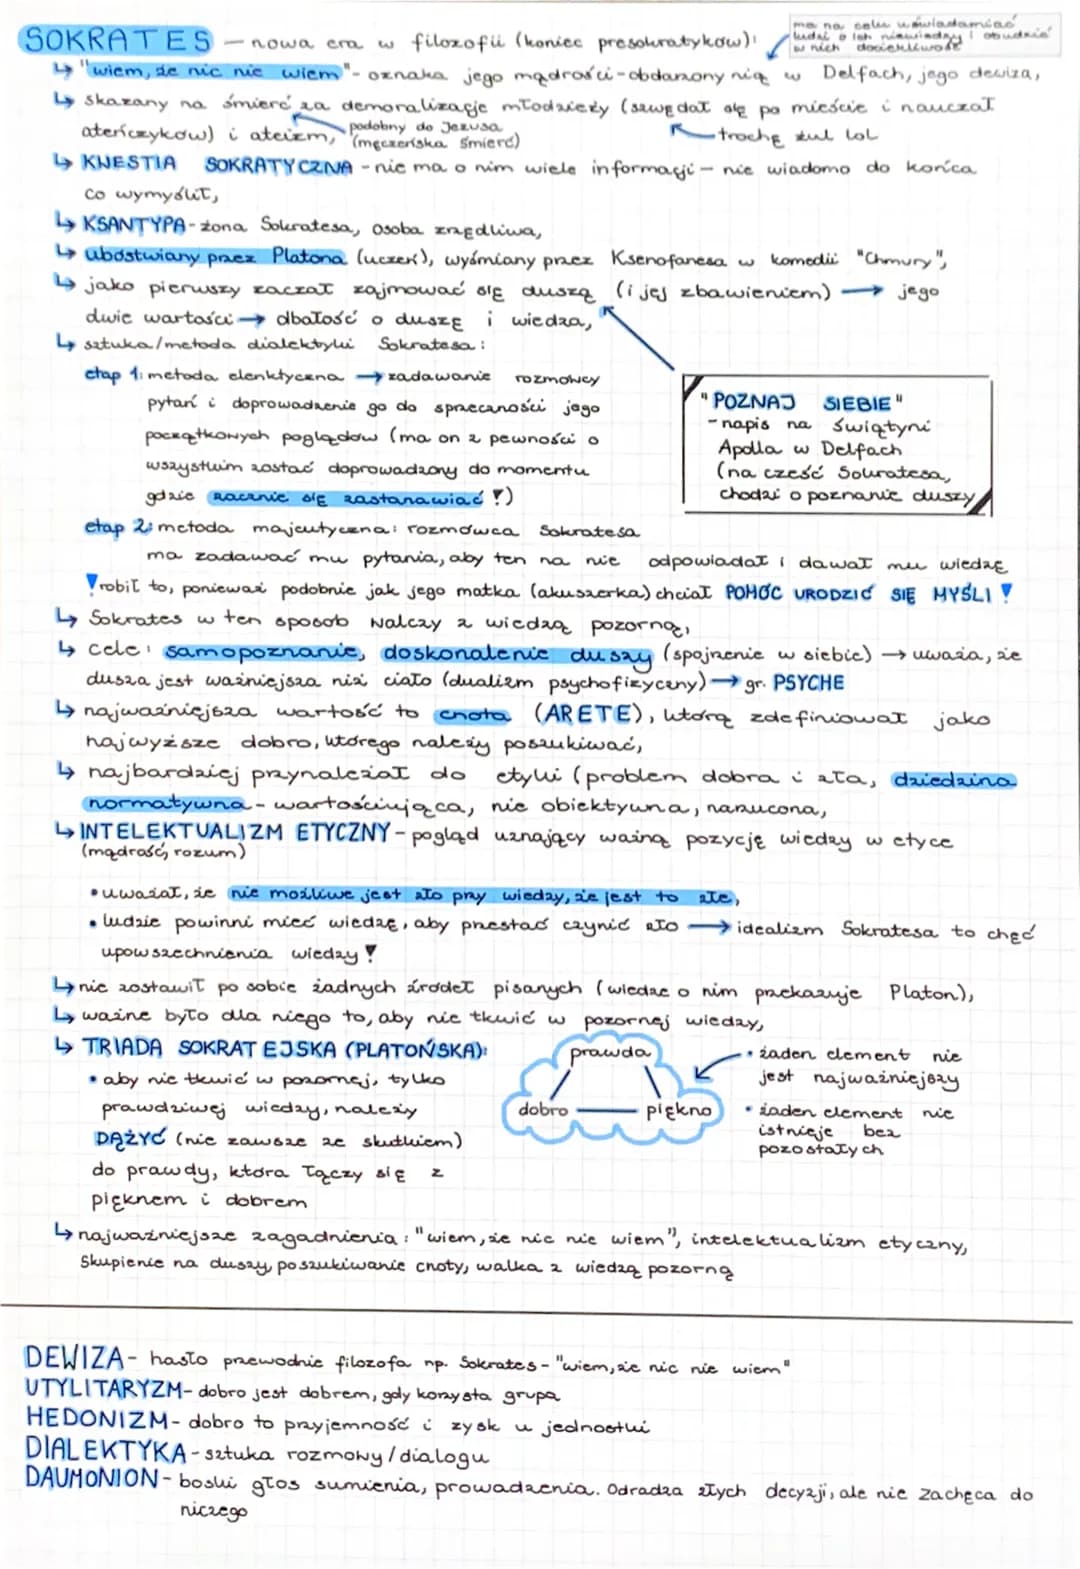 ma na celu uświadamiać
ludzi o ich niewiedzy i obudzić
w nich dociekliwość
SOKRATES — nowa era w filozofii (koniec presokratyków)!
↳ "wiem, że nic nie wiem" - oznaka jego mądrości - obdarzony nią w Delfach, jego dewiza,
↳ skazany na śmierć za demoralizację młodzieży (szwędał się po mieście i nauczał
ateńczyków) i ateizm,
podobny do Jezusa
(męczeńska śmierć)
trochę żul lol
↳ KWESTIA SOKRATYCZNA - nie ma o nim wiele informacji - nie wiadomo do końca
co wymyślił,
↳ KSANTYPA - żona Sokratesa, osoba zrzędliwa,
↳ ubóstwiany przez Platona (uczeń), wyśmiany przez Ksenofanesa w komedii "Chmury",
↳ jako pierwszy zaczął zajmować się duszą (i jej zbawieniem) → jego
dwie wartości → dbałość o duszę i wiedza,
↳ sztuka/metoda dialektyki Sokratesa:
etap 1: metoda elenktyczna → zadawanie rozmówcy
pytań i doprowadzenie go do sprzeczności jego
początkowych poglądów (ma on z pewności o
wszystkim zostać doprowadzony do momentu
gdzie zacznie się zastanawiać!)
"POZNAJ SIEBIE"
- napis na świątyni
Apolla w Delfach
(na cześć Sokratesa,
chodzi o poznanie duszy
etap 2: metoda majeutyczna: rozmówca Sokratesa
ma zadawać mu pytania, aby ten na nie odpowiadał i dawał mu wiedzę
! robił to, ponieważ podobnie jak jego matka (akuszerka) chciał POMÓC URODZIĆ SIĘ MYŚLI !
↳ Sokrates w ten sposób walczy z wiedzą pozorną,
↳ cele: samopoznanie, doskonalenie duszy (spojrzenie w siebie) → uważa, że
dusza jest ważniejsza niż ciało (dualizm psychofizyczny) → gr. PSYCHE
↳ najważniejsza wartość to cnota (ARETE), którą zdefiniował jako
najwyższe dobro, którego należy poszukiwać,
↳ najbardziej przynależał do etyki (problem dobra i zła, dziedzina
normatywna - wartościująca, nie obiektywna, narzucona,
↳ INTELEKTUALIZM ETYCZNY - pogląd uznający ważną pozycję wiedzy w etyce
(mądrość, rozum)
• uważał, że nie możliwe jest zło przy wiedzy, że jest to złe,
• ludzie powinni mieć wiedzę, aby przestać czynić zło → idealizm Sokratesa to chęć
upowszechnienia wiedzy!
↳ nie zostawił po sobie żadnych źródeł pisanych (wiedzę o nim przekazuje Platon),
↳ ważne było dla niego to, aby nie tkwić w pozornej wiedzy,
↳ TRIADA SOKRATEJSKA (PLATOŃSKA):
• aby nie tkwić w pozornej, tylko
prawdziwej wiedzy, należy
DĄŻYĆ (nie zawsze ze skutkiem)
do prawdy, która łączy się z
pięknem i dobrem
prawda
dobro — piękno
• żaden element nie
jest najważniejszy
• żaden element nie
istnieje bez
pozostałych
↳ najważniejsze zagadnienia: "wiem, że nic nie wiem", intelektualizm etyczny,
skupienie na duszy, poszukiwanie cnoty, walka z wiedzą pozorną
DEWIZA - hasło przewodnie filozofa np. Sokrates - "wiem, że nic nie wiem"
UTYLITARYZM - dobro jest dobrem, gdy korzysta grupa
HEDONIZM - dobro to przyjemność i zysk u jednostki
DIALEKTYKA - sztuka rozmowy/dialogu
DAUMONION - boski głos sumienia, prowadzenia. Odradza złych decyzji, ale nie zachęca do
niczego